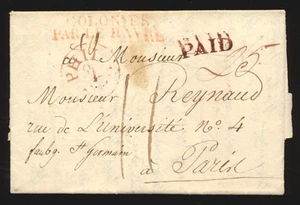 COLONIES
PAR LE HAVRE
PAID
25
Monsieur
Monsieur Reynaud
rue de L'université. N.º 4
faubg. St Germain
à Paris